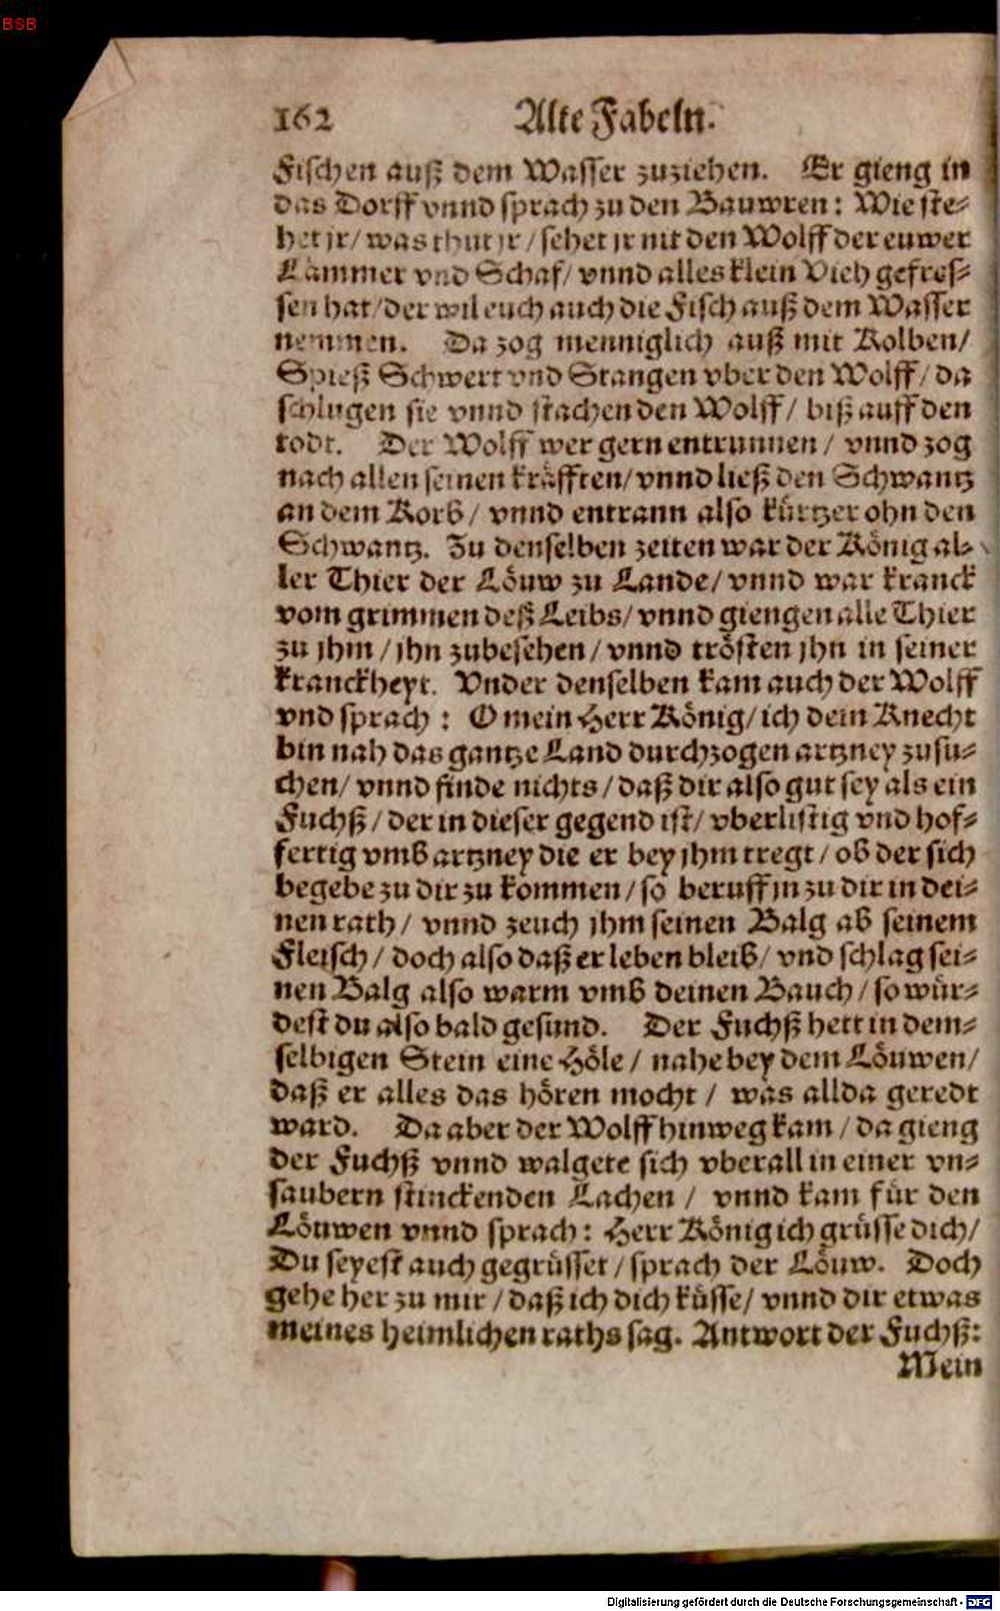 BSB
162 Alte Fabeln.
Fischen auß dem Wasser zuziehen. Er gieng in
das Dorff vnnd sprach zu den Bauwren: Wie ste-
het jr/ was thut jr/ sehet jr nit den Wolff der euwer
Lämmer vnd Schaf/ vnnd alles klein Vieh gefres-
sen hat/ der wil euch auch die Fisch auß dem Wasser
nemmen. Da zog menniglich auß mit Kolben/
Spieß Schwert vnd Stangen vber den Wolff/ da
schlugen sie vnnd stachen den Wolff/ biß auff den
todt. Der Wolff wer gern entrunnen/ vnnd zog
nach allen seinen kräfften/ vnnd ließ den Schwantz
an dem Korb/ vnnd entrann also kürtzer ohn den
Schwantz. Zu denselben zeiten war der König al-
ler Thier der Löuw zu Lande/ vnnd war kranck
vom grimmen deß Leibs/ vnnd giengen alle Thier
zu jhm/ jhn zubesehen/ vnnd trösten jhn in seiner
kranckheyt. Vnder denselben kam auch der Wolff
vnd sprach: O mein Herr König/ ich dein Knecht
bin nah das gantze Land durchzogen artzney zusu-
chen/ vnnd finde nichts/ daß dir also gut sey als ein
Fuchß/ der in dieser gegend ist/ vberlistig vnd hof-
fertig vmb artzney die er bey jhm tregt/ ob der sich
begebe zu dir zu kommen/ so beruff jn zu dir in dei-
nen rath/ vnnd zeuch jhm seinen Balg ab seinem
Fleisch/ doch also daß er leben bleib/ vnd schlag sei-
nen Balg also warm vmb deinen Bauch/ so wür-
dest du also bald gesund. Der Fuchß hett in dem-
selbigen Stein eine Höle/ nahe bey dem Löuwen/
daß er alles das hören mocht/ was allda geredt
ward. Da aber der Wolff hinweg kam/ da gieng
der Fuchß vnnd walgete sich vberall in einer vn-
saubern stinckenden Lachen/ vnnd kam für den
Löuwen vnnd sprach: Herr König ich grüsse dich/
Du seyest auch gegrüsset/ sprach der Löuw. Doch
gehe her zu mir/ daß ich dich küsse/ vnnd dir etwas
meines heimlichen raths sag. Antwort der Fuchß:
Mein
Digitalisierung gefördert durch die Deutsche Forschungsgemeinschaft - DFG